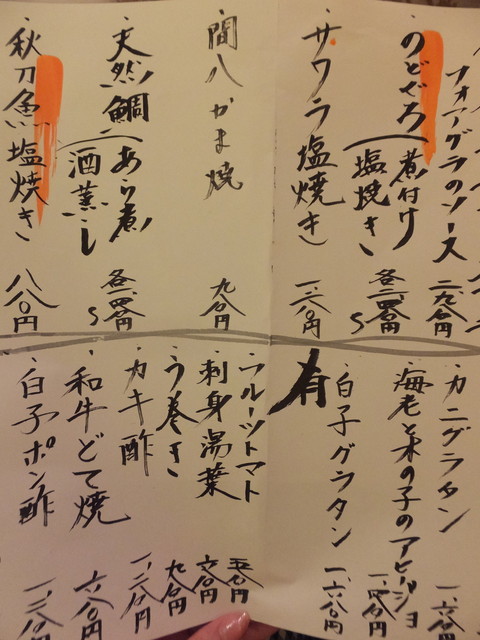 フォアグラのソース 二、九〇〇円
・のどぐろ 煮付け 塩焼き 各二、四〇〇円〜
・サワラ塩焼き 一、二〇〇円
間八かま焼 九〇〇円
・天然鯛 あら煮 酒蒸し 各一、四〇〇円〜
・秋刀魚塩焼き 八〇〇円
・カニグラタン
・海老と木の子のアヒージョ
有
白子グラタン 一、六〇〇円
・フルーツトマト 五〇〇円
・刺身湯葉 六〇〇円
・う巻き 九〇〇円
・カキ酢 一、二〇〇円
・和牛どて焼 六〇〇円
・白子ポン酢 一、二〇〇円